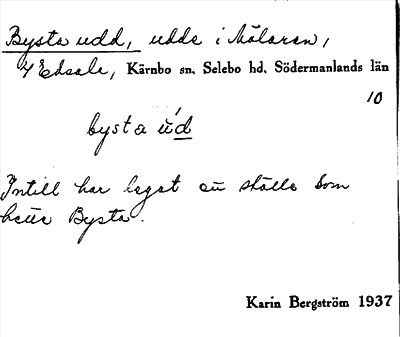 Bysta udd, udde i Mälaren,
Y Edsala, Kärnbo sn. Selebo hd. Södermanlands län
10
bysta úd
Intill har legat ett ställe som
hette Bysta.
Karin Bergström 1937